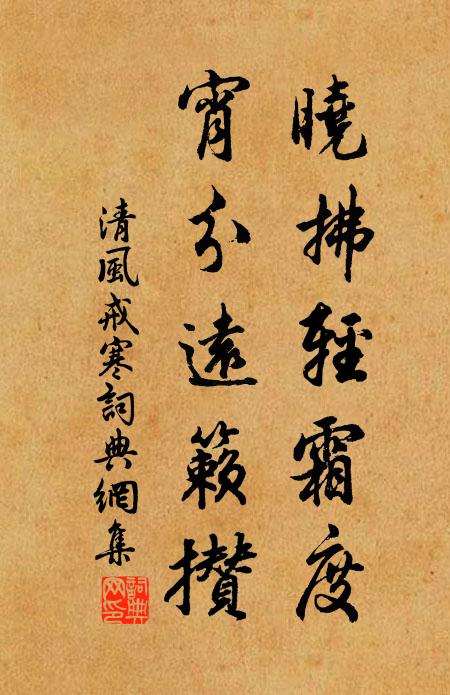 曉拂輕霜度
宵分遠籟攅
清風戒寒詞典網集
詞典网印